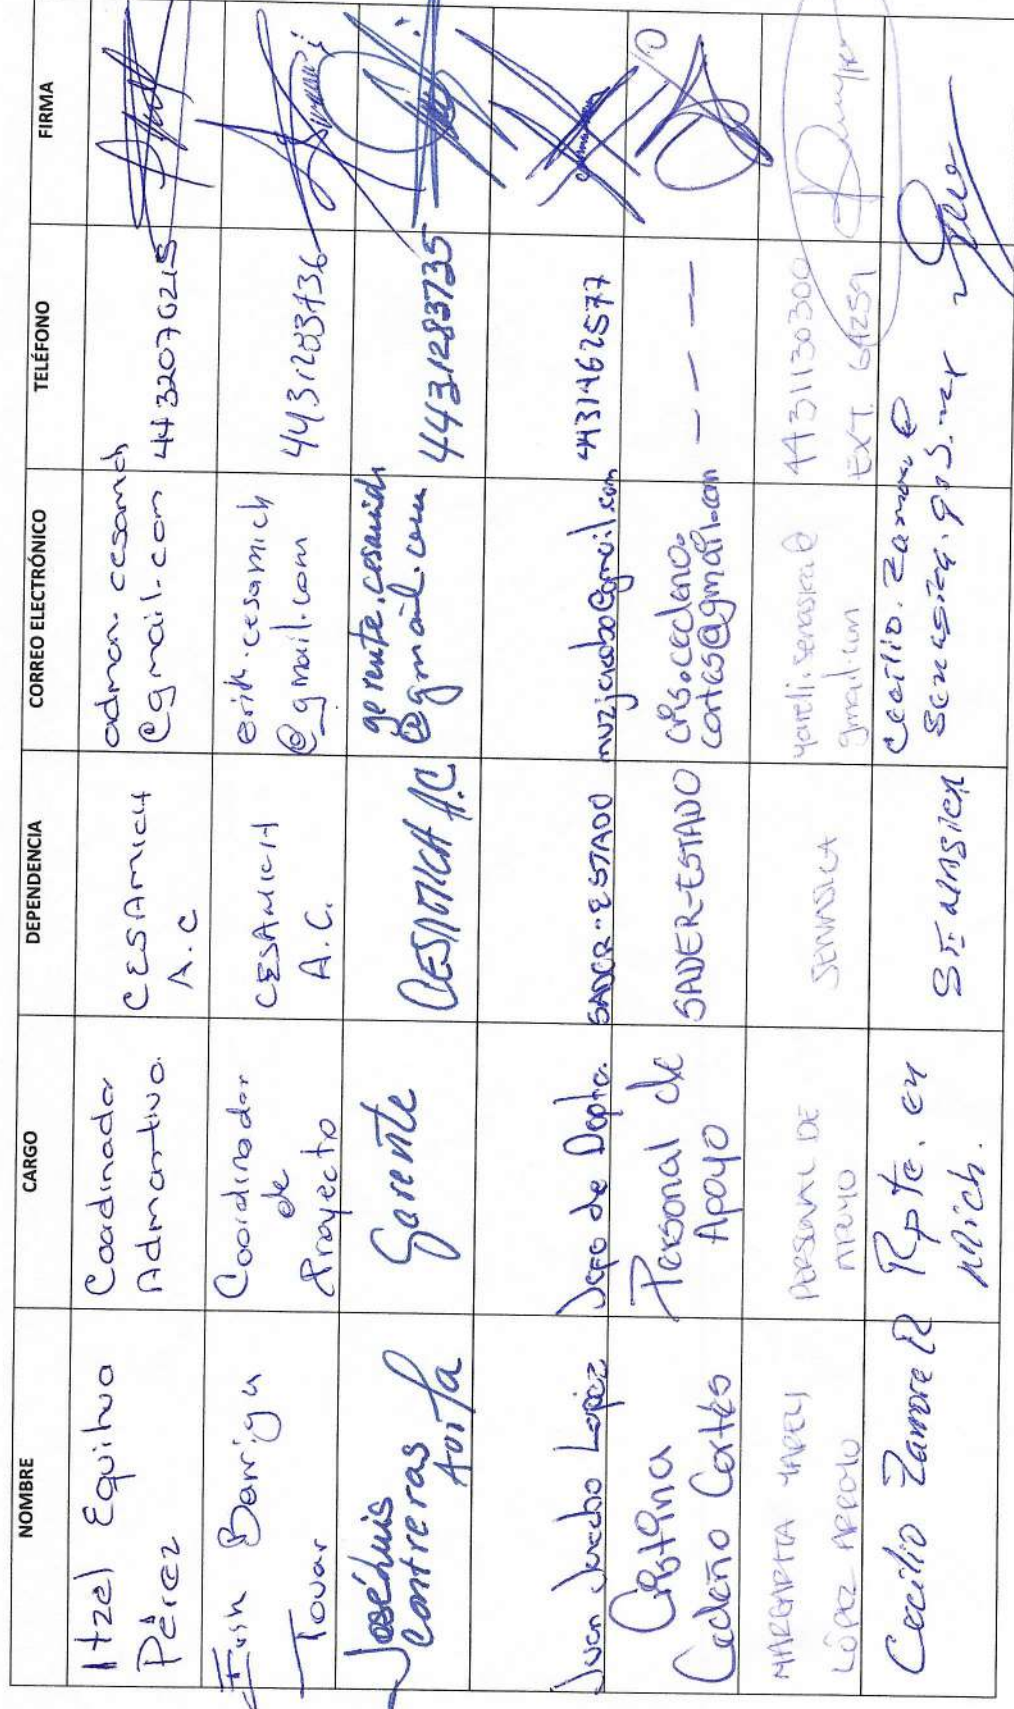 NOMBRE CARGO DEPENDENCIA CORREO ELECTRÓNICO TELÉFONO FIRMA
Itzel Equihua
Pérez
Coordinador
Admartivo.
CESAMICH
A.C
admon.cesamich
@gmail.com
4432070215
Erik Barriga
Tovar
Coordinador
de
Proyecto
CESAMICH
A.C.
erik.cesamich
@gmail.com
4431203736
José Luis
Contreras
Avila
Gerente
CESAMICH A.C.
gerente.cesamich
@gmail.com
4431283735
Juan Jacobo Lopez
Jefe de Depto.
SADER-ESTADO
muzjacobo@gmail.com
4431462577
Cristina
Cedeño Cortés
Personal de
Apoyo
SADER-ESTADO
cris.cedeno.
cortes@gmail.com
- - - -
MARGARITA YARELI
LÓPEZ ARROYO
PERSONAL DE
APOYO
SENASICA
yareli.senasica@
gmail.com
4431130300
EXT. 64259
Cecilio Zamora R
Rpte. en
Mich.
SENASICA
cecilio.zamora@
senasica.gob.mx